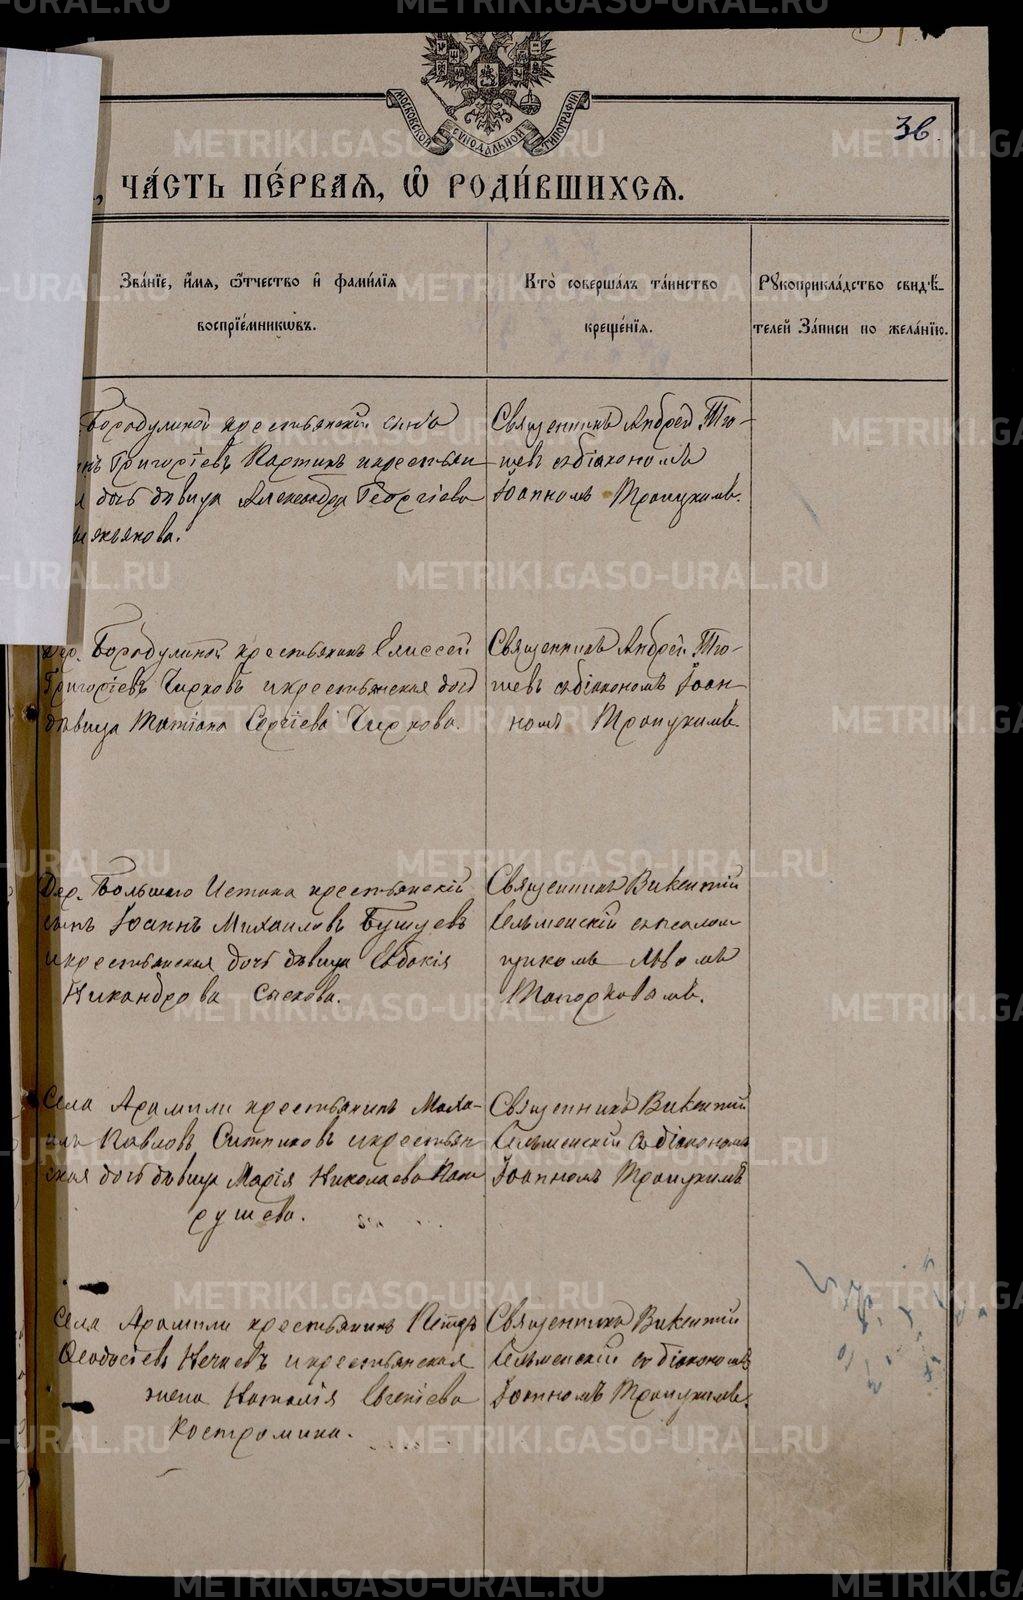 МОСКОВСКОЙ СѴНОДАЛЬНОЙ ТИПОГРАФІИ
36.
, ЧА́СТЬ ПЕ́РВАѦ, Ѡ҆ РОДИ́ВШИХСѦ.
Зва́нїе, и҆́мѧ, ѻ҆́тчество и҆ фами́лїѧ
воспрїе́мникѡвъ.
Кто̀ соверша́лъ та́инство
креще́нїѧ.
Рꙋкоприкла́дство свидѣ́-
телей За́писи по жела́нїю.
Бородулиной крестьянскій сынъ
Григоріевъ и крестьян
дочь дѣвица Александра Георгіева
Священникъ Андрей Тю-
шевъ съ діакономъ
Іоанномъ Троицкимъ.
Дер. Бородулиной крестьянинъ Елиссей
Григоріевъ Чирковъ и крестьянская дочь
дѣвица Татіана Сергіева Чиркова.
Священникъ Андрей Тю-
шевъ съ діакономъ Іоан-
номъ Троицкимъ
Дер. Большаго Истока крестьянскій
сынъ Іоаннъ Михаиловъ Бушуевъ
и крестьянская дочь дѣвица Евдокія
Никандрова
Священникъ Викентій
Сельменскій съ псалом
щикомъ Львомъ
Топорковымъ.
Села Арамили крестьянинъ Миха-
илъ Павловъ Ситниковъ и крестьян
ская дочь дѣвица Марія Николаева
рушева.
Священникъ Викентій
Сельменскій съ діакономъ
Іоанномъ Троицкимъ
Села Арамили крестьянинъ Петръ
Ѳеодосіевъ Нечаевъ и крестьянская
жена Наталія Евгеніева
Костромина.
Священникъ Викентій
Сельменскій съ діакономъ
Іоанномъ Троицкимъ.
METRIKI.GASO-URAL.RU